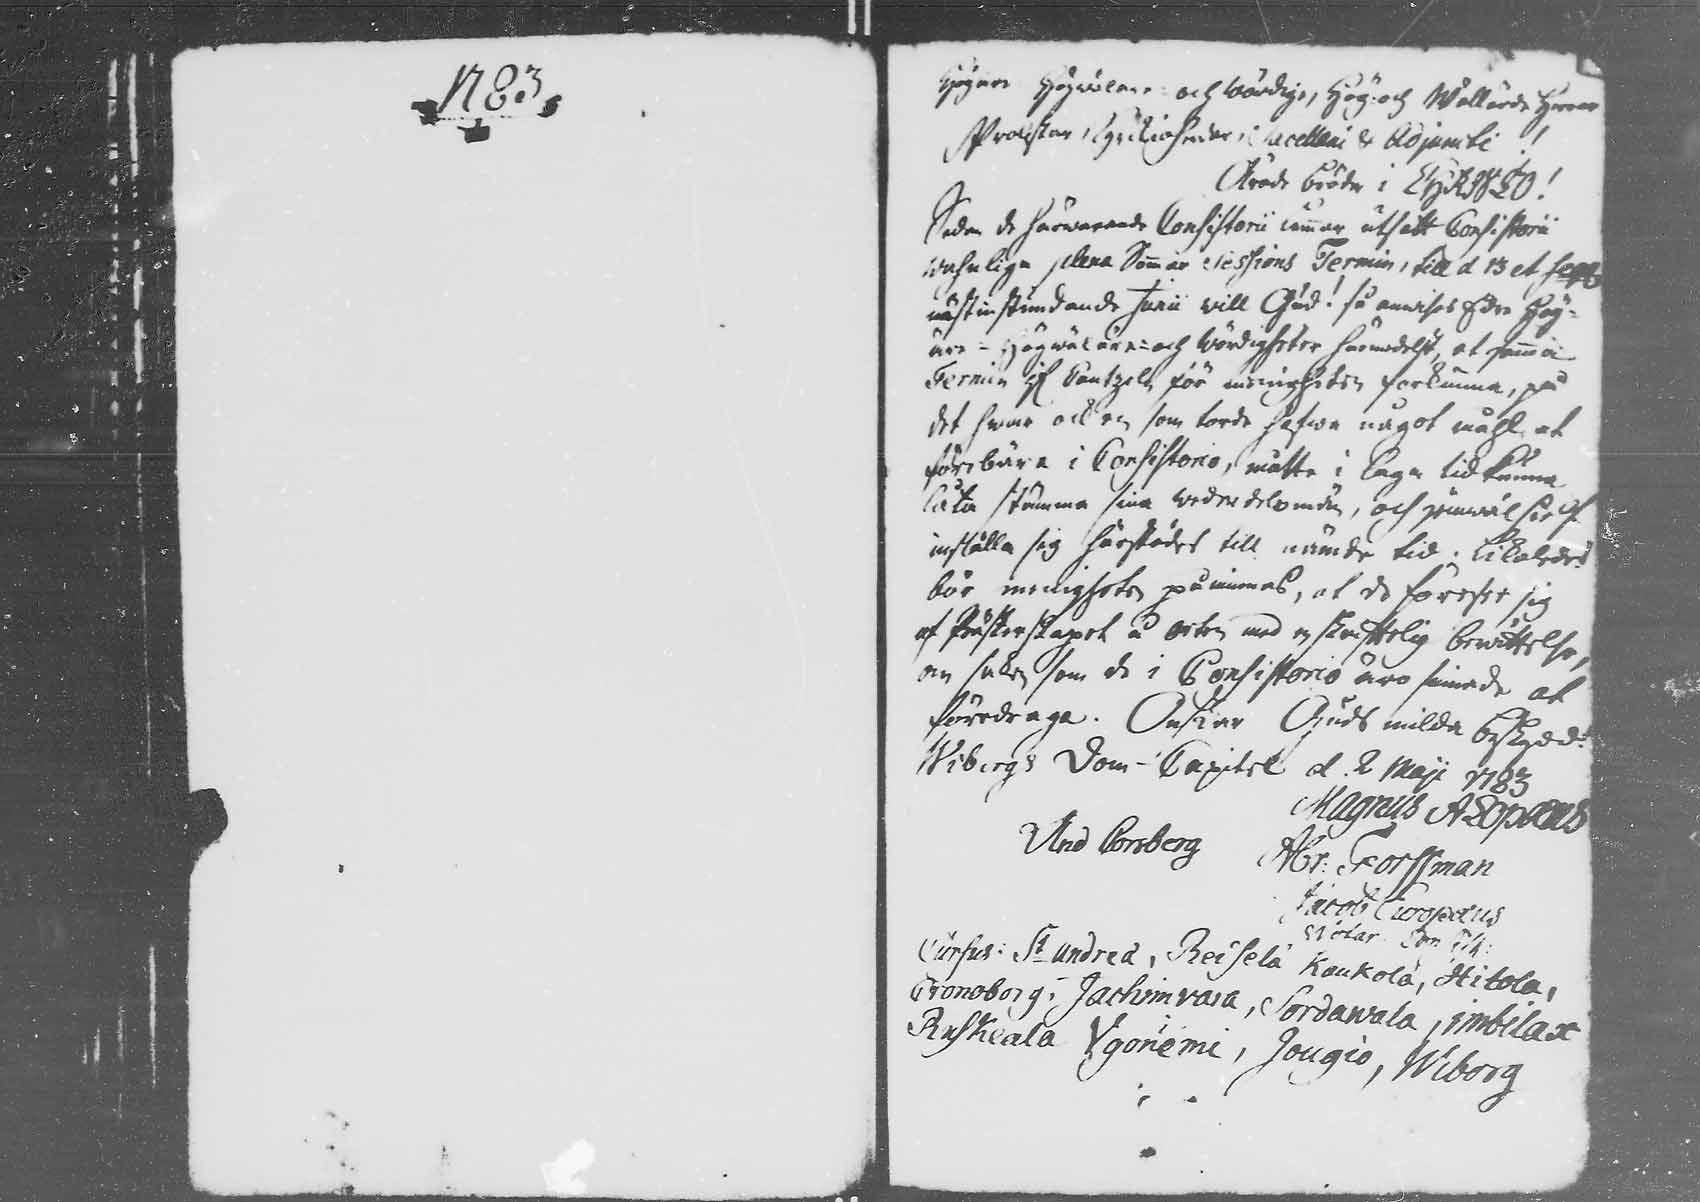 1783
Högärw. Högwälärw. och Wördige, Hög- och Wällärde Herrar
Prostar, Kyrkioherdar, Sacellani & Adjuncti!
Ärade Bröder i CHRISTO!
Sedan de härwarande Consistorii utsatt Consistorii
wahnliga plena Sessions Termin, till d 13 et seqq
nästinstundande Junii will Gud! så anwises Eder Hög-
ärw- Högwälärw- och Wördigheter härmedelst, at samma
Termin af Cantzeln för menigheten forkunna, på
det hwar och en som torde hafwa något måhl at
förebära i Consistorio, måtte i laga tid kunna
låta stämma sina wederdelomän, och jemwäl sielf
inställa sig härstädes till nämde tid. Likaledes
bör menigheten påminnas, at de förese sig
af Prästerskapet å orten med en skriftelig berättelse,
om saken som de i Consistorio äro sinnade at
föredraga. Önskar Guds milda beskydd.
Wiborgs Dom-Capitel d. 2 Maji 1783
Magnus Alopaeus
And Corsberg Abr: Forssman
Jacob Europaeus
Notar. Con
Cursus: St Andreá, Reiselä Kaukola, Hitola,
Cronoborg, Jachimvara, Sordawala, imbilax
Ruskeala Ygonemi, Jougio, Wiborg